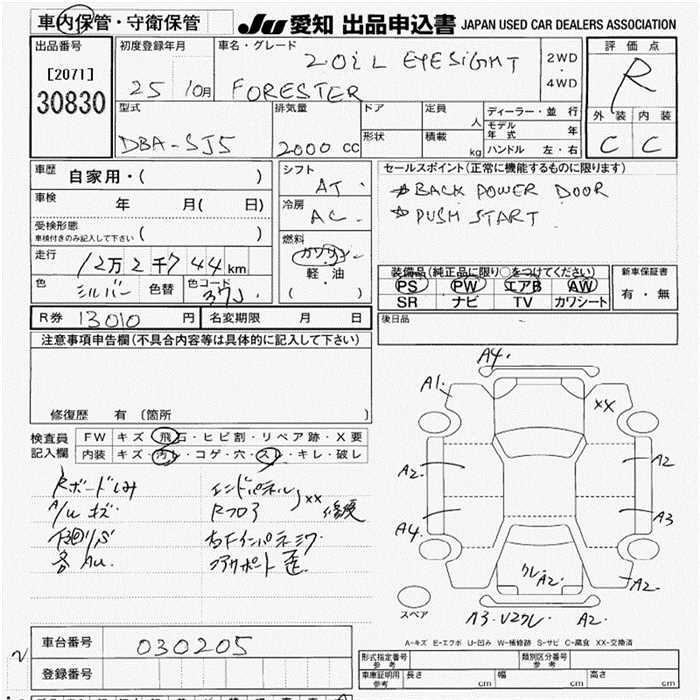 車内保管・守衛保管
JU 愛知 出品申込書 JAPAN USED CAR DEALERS ASSOCIATION
出品番号
[2071]
30830
初度登録年月
25 10月
車名・グレード
20i L EYESIGHT
FORESTER
2WD
・
4WD
評価点
R
外装 内装
C C
型式
DBA-SJ5
排気量
2000 CC
ドア
形状
定員
人
積載
kg
ディーラー・並行
モデル年式 年
ハンドル 左・右
車歴 自家用・( )
車検 年 月( 日)
受検形態
車検付きのみ記入して下さい ( )
走行 12万2千744km
色 シルバー 色替 色コード 37J
シフト
AT
冷房
AC
燃料
ガソリン
・
軽油
( )
セールスポイント(正常に機能するものに限ります)
☆BACK POWER DOOR
☆PUSH START
装備品(純正品に限り○をつけてください)
PS PW エアB AW
SR ナビ TV カワシート
新車保証書
有・無
R券 13010円 名変期限 月 日
後日品
注意事項申告欄(不具合内容等は具体的に記入して下さい)
修復歴 有(箇所 )
検査員
記入欄
FW キズ・飛石・ヒビ割・リペア跡・X要
内装 キズ・汚レ・コゲ・穴・スレ・キレ・破レ
Rボードしみ
A/W キズ
下回りS
各AU.
エンドパネル
Rフロア
XX 修復
A4.
A1.
XX
A2
A2
A4
A3
A2
A2
A3.
A2.
スペア
A-キズ E-エクボ U-凹み W-補修跡 S-サビ C-腐食 XX-交換済
車台番号 030205
登録番号
形式指定番号
参考
類別区分番号
参考
車庫証明用
参考
長さ cm 幅 cm 高さ cm